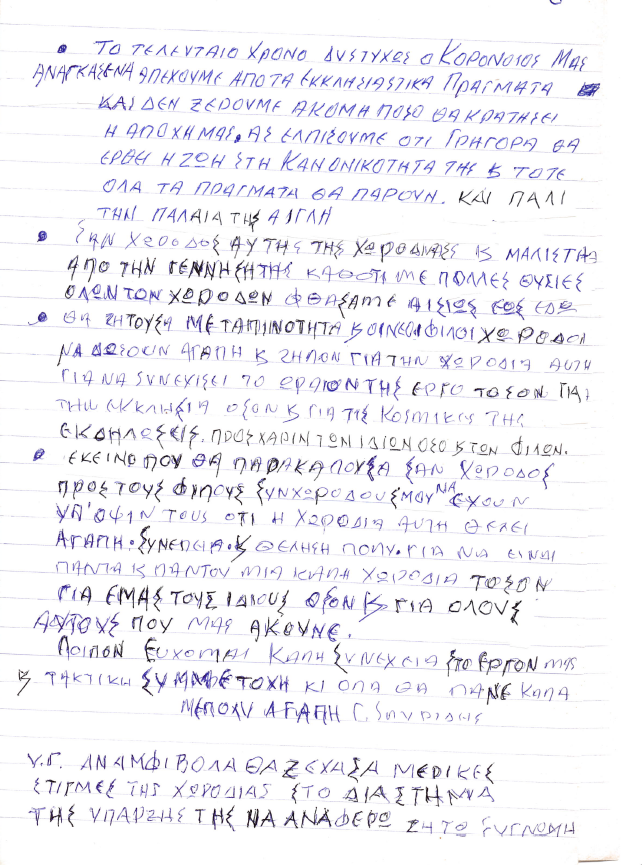 • ΤΟ ΤΕΛΕΥΤΑΙΟ ΧΡΟΝΟ ΔΥΣΤΥΧΩΣ Ο ΚΟΡΟΝΟΙΟΣ ΜΑΣ
ΑΝΑΓΚΑΣΕ ΝΑ ΑΠΕΧΟΥΜΕ ΑΠΟ ΤΑ ΕΚΚΛΗΣΙΑΣΤΙΚΑ ΠΡΑΓΜΑΤΑ
ΚΑΙ ΔΕΝ ΞΕΡΟΥΜΕ ΑΚΟΜΗ ΠΟΣΟ ΘΑ ΚΡΑΤΗΣΕΙ
Η ΑΠΟΧΗ ΜΑΣ. ΑΣ ΕΛΠΙΣΟΥΜΕ ΟΤΙ ΓΡΗΓΟΡΑ ΘΑ
ΕΡΘΕΙ Η ΖΩΗ ΣΤΗ ΚΑΝΟΝΙΚΟΤΗΤΑ ΤΗΣ Ϗ ΤΟΤΕ
ΟΛΑ ΤΑ ΠΡΑΓΜΑΤΑ ΘΑ ΠΑΡΟΥΝ. ΚΑΙ ΠΑΛΙ
ΤΗΝ ΠΑΛΑΙΑ ΤΗΣ ΑΙΓΛΗ
• ΣΑΝ ΧΩΡΟΔΟΣ ΑΥΤΗΣ ΤΗΣ ΧΩΡΟΔΙΑΣ Ϗ ΜΑΛΙΣΤΑ
ΑΠΟ ΤΗΝ ΓΕΝΝΗΣΗ ΤΗΣ ΚΑΘΟΤΙ ΜΕ ΠΟΛΛΕΣ ΘΥΣΙΕΣ
ΟΛΩΝ ΤΟΝ ΧΩΡΟΔΩΝ ΦΘΑΣΑΜΕ ΑΙΣΙΩΣ ΕΩΣ ΕΔΩ
• ΘΑ ΖΗΤΟΥΣΑ ΜΕ ΤΑΠΙΝΟΤΗΤΑ Ϗ ΟΙ ΝΕΟΙ ΦΙΛΟΙ ΧΩΡΟΔΟΙ
ΝΑ ΔΩΣΟΥΝ ΑΓΑΠΗ Ϗ ΖΗΛΟΝ ΓΙΑ ΤΗΝ ΧΩΡΟΔΙΑ ΑΥΤΗ
ΓΙΑ ΝΑ ΣΥΝΕΧΙΣΕΙ ΤΟ ΩΡΑΙΟΝ ΤΗΣ ΕΡΓΟ ΤΟΣΟΝ ΓΙΑ
ΤΗΝ ΕΚΚΛΗΣΙΑ ΟΣΟΝ Ϗ ΓΙΑ ΤΙΣ ΚΟΣΜΙΚΕΣ ΤΗΣ
ΕΚΔΗΛΩΣΕΙΣ. ΠΡΟΣ ΧΑΡΙΝ ΤΩΝ ΙΔΙΩΝ ΟΣΟ Ϗ ΤΩΝ ΦΙΛΩΝ.
• ΕΚΕΙΝΟ ΠΟΥ ΘΑ ΠΑΡΑΚΑΛΟΥΣΑ ΣΑΝ ΧΩΡΟΔΟΣ
ΠΡΟΣ ΤΟΥΣ ΦΙΛΟΥΣ ΣΥΝΧΩΡΟΔΟΥΣ ΜΟΥ ΝΑ ΕΧΟΥΝ
ΥΠ'ΟΨΙΝ ΤΟΥΣ ΟΤΙ Η ΧΩΡΟΔΙΑ ΑΥΤΗ ΘΕΛΕΙ
ΑΓΑΠΗ. ΣΥΝΕΠΕΙΑ. Ϗ ΘΕΛΗΣΗ ΠΟΛΥ. ΓΙΑ ΝΑ ΕΙΝΑΙ
ΠΑΝΤΑ Ϗ ΠΑΝΤΟΥ ΜΙΑ ΚΑΛΗ ΧΩΡΟΔΙΑ ΤΟΣΟΝ
ΓΙΑ ΕΜΑΣ ΤΟΥΣ ΙΔΙΟΥΣ ΟΣΟΝ Ϗ ΓΙΑ ΟΛΟΥΣ
ΑΥΤΟΥΣ ΠΟΥ ΜΑΣ ΑΚΟΥΝΕ.
ΛΟΙΠΟΝ ΕΥΧΟΜΑΙ ΚΑΛΗ ΣΥΝΕΧΕΙΑ ΣΤΟ ΕΡΓΟΝ ΜΑΣ
Ϗ ΤΑΚΤΙΚΗ ΣΥΜΜΕΤΟΧΗ ΚΙ ΟΛΑ ΘΑ ΠΑΝΕ ΚΑΛΑ
ΜΕ ΠΟΛΥ ΑΓΑΠΗ Γ. ΣΠΥΡΙΔΗΣ
Υ.Γ. ΑΝΑΜΦΙΒΟΛΑ ΘΑ ΞΕΧΑΣΑ ΜΕΡΙΚΕΣ
ΣΤΙΓΜΕΣ ΤΗΣ ΧΩΡΟΔΙΑΣ ΣΤΟ ΔΙΑΣΤΗΜΑ
ΤΗΣ ΥΠΑΡΞΗΣ ΤΗΣ ΝΑ ΑΝΑΦΕΡΩ ΖΗΤΩ ΣΥΓΝΩΜΗ